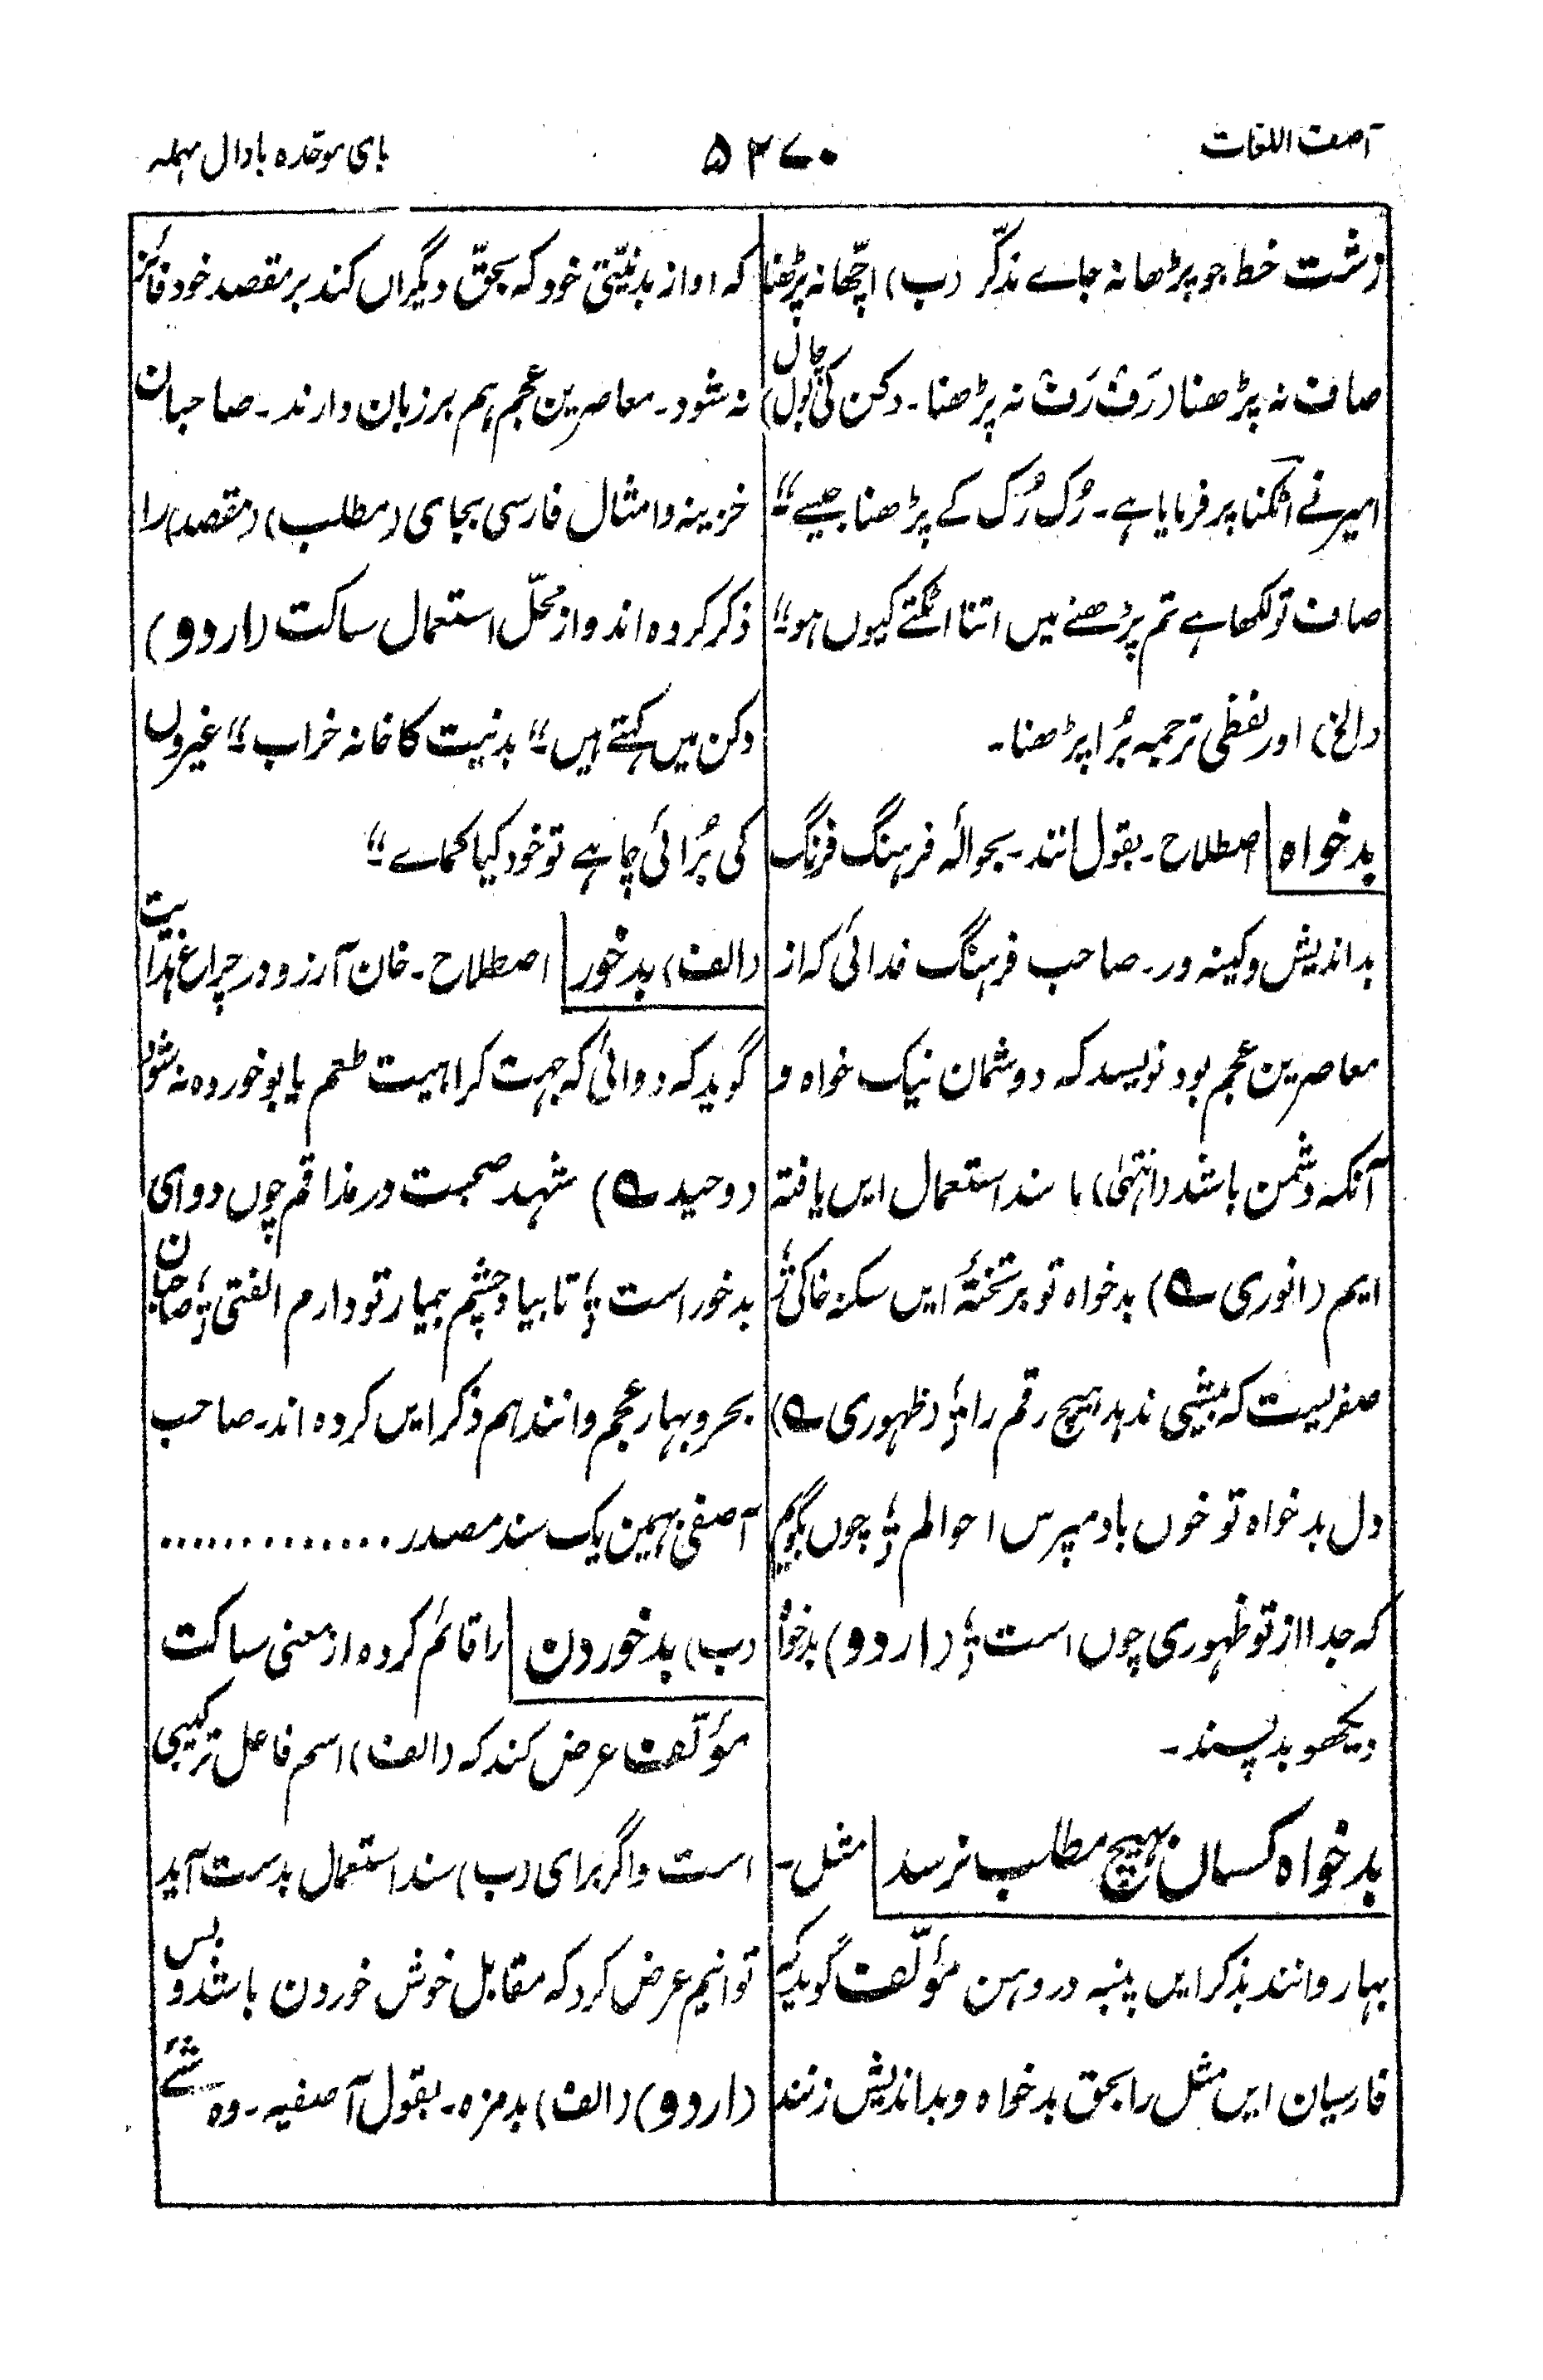 آصف اللغات
۵۲۷۰
بای موحّدہ با دال مہملہ
زشت خط جو پڑھا نہ جاے مذکّر (ب) اچّھا نہ پڑھنا
صاف نہ پڑھنا (رَف رَف نہ پڑھنا۔ دکن کی بول چال)
امیر نے اٹکنا پر فرمایا ہے۔ رُک رُک کے پڑھنا جیسے ”
صاف تو لکھا ہے تم پڑھنے میں اتنا اٹکتے کیوں ہو“
(الخ) اور لفظی ترجمہ بُرا پڑھنا۔
بدخواہ اصطلاح۔ بقول انند۔ بحوالۂ فرہنگ فرنگ
بداندیش و کینہ ور۔ صاحب فرہنگ فدائی کہ از
معاصرین عجم بود نویسد کہ دوشمان نیک خواہ و
آنکہ دشمن باشد (انتہیٰ) ما سند استعمال ایں یافتہ
ایم (انوری ؎) بدخواہ تو بر تختۂ ایں سکنہ خاکی ؛
صفریست کہ بیشی ندہد ہیچ رقم را ؛ (ظہوری ؎)
دل بدخواہ تو خوں باد مپرس احوالم ؛ چوں بگویم
کہ جدا از تو ظہوری چوں است ؛ (اردو) بدخواہ
دیکھو بدپسند۔
بدخواہ کسان بہیچ مطلب نرسد مثل۔
بہار و انند بذکر ایں پنبہ در دہن مؤلّف گوید کہ
فارسیان ایں مثل را بحق بدخواہ و بداندیش زنند
کہ او از بدنیّتی خود کہ بحقّ دیگراں کند بر مقصد خود فائز
نہ شود۔ معاصرین عجم ہم بر زبان دارند۔ صاحبان
خزینہ و امثال فارسی بجای (مطلب) (مقصد) را
ذکر کردہ اند و از محلّ استعمال ساکت (اردو)
دکن میں کہتے ہیں ”بدنیت کا خانہ خراب“ ”غیروں
کی بُرائی چاہے تو خود کیا کماے“
(الف) بدخور اصطلاح۔ خان آرزو در چراغ ہدایت
گوید کہ دوائی کہ جہت کراہیت طعم یا بو خوردہ نہ شود
(وحید ؎) شہد صحبت در مذاقم چوں دوای
بدخور است ؛ تا بیاد چشم بیمار تو دارم الفتی ؛ صاحبان
بحر و بہار عجم و انند ہم ذکر ایں کردہ اند۔ صاحب
آصفی بہمین یک سند مصدر .............
(ب) بدخوردن را قائم کردہ از معنی ساکت
مؤلّف عرض کند کہ (الف) اسم فاعل ترکیبی
است و اگر برای (ب) سند استعمال بدست آید
توانیم عرض کرد کہ مقابل خوش خوردن باشد و بس
(اردو) (الف) بدمزہ۔ بقول آصفیہ۔ وہ شئے